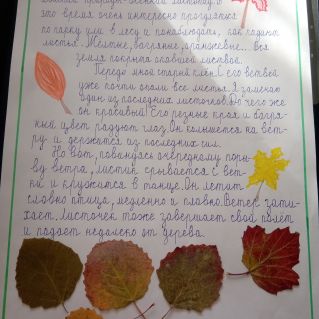 это время очень интересно прогуляться
по парку или в лесу и понаблюдать, как падают
листья. Жёлтые, багряные, оранжевые... вся
земля покрыта опавшей листвой.
Передо мной старый клён. С его ветвей
уже почти опали все листья. Я замечаю
один из последних листочков. До чего же
он красивый! Его резные края и багря-
ный цвет радуют глаз. Он колышется на вет-
ру и держится из последних сил.
Но вот, повинуясь очередному поры-
ву ветра, листик срывается с вет-
ки и кружится в танце. Он летит
словно птица, медленно и плавно. Ветер зати-
хает. Листочек тоже завершает свой полёт
и падает недалеко от дерева.